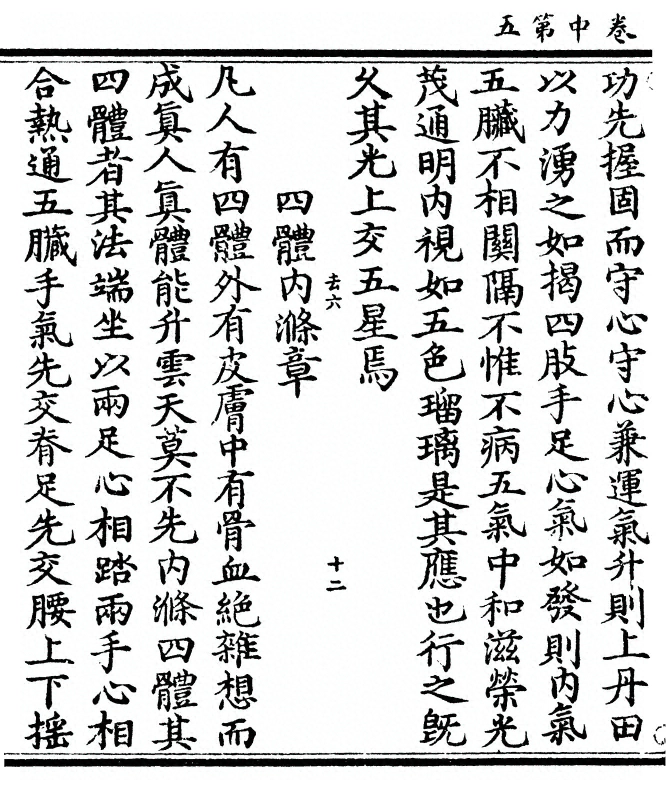 卷中第五
功先握固而守心守心兼運氣升則上丹田
以力湧之如揭四肢手足心氣如發則內氣
五臟不相關隔不惟不病五氣中和滋榮光
茂通明內視如五色瑠璃是其應也行之既
久其光上交五星焉
去六
十二
四體內滌章
凡人有四體外有皮膚中有骨血絕雜想而
成眞人眞體能升雲天莫不先內滌四體其
四體者其法端坐以兩足心相踏兩手心相
合熱通五臟手氣先交脊足先交腰上下揺